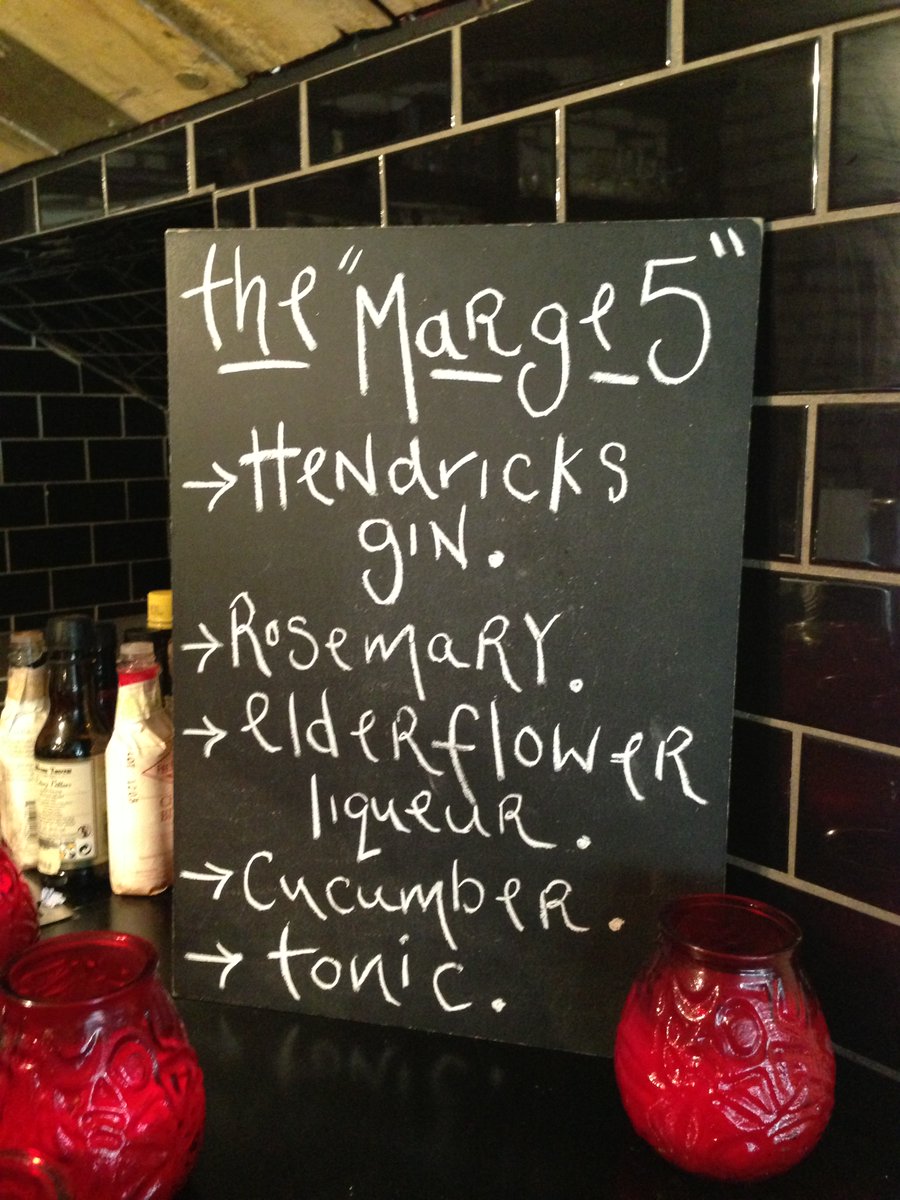 the "Marge 5"
→ Hendricks
gin.
→ Rosemary.
→ elderflower
liqueur.
→ Cucumber.
→ tonic.